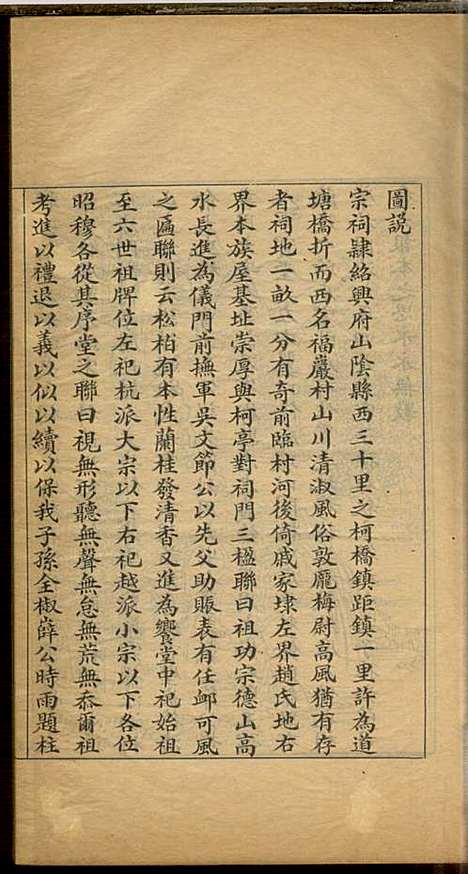 圖說
宗祠隸紹興府山陰縣西三十里之柯橋鎮距鎮一里許為道
塘橋折而西名福嚴村山川清淑風俗敦龐梅尉高風猶有存
者祠地一畝一分有奇前臨村河後倚戚家埭左界趙氏地右
界本族屋基址崇厚與柯亭對祠門三楹聯曰祖功宗德山高
水長進為儀門前撫軍吳文節公以先父助賑表有任卹可風
之匾聯則云松柏有本性蘭桂發清香又進為饗堂中祀始祖
至六世祖牌位左祀杭派大宗以下右祀越派小宗以下各位
昭穆各從其序堂之聯曰視無形聽無聲無怠無荒無忝爾祖
考進以禮退以義以似以續以保我子孫全椒薛公時雨題柱